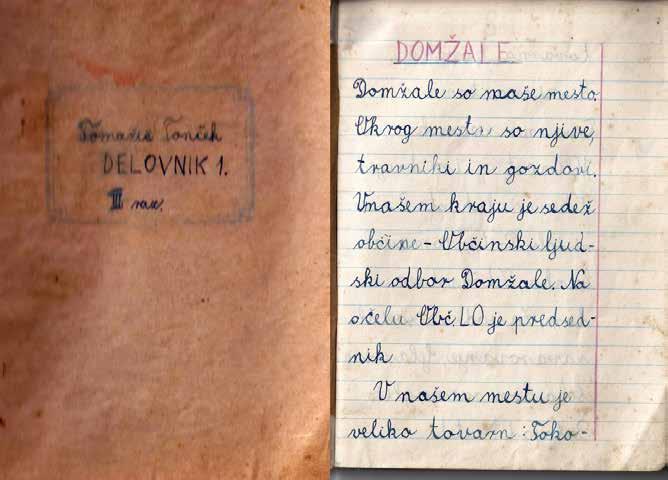 Tomažič Tonček
DELOVNIK 1.
III raz.
DOMŽALE
Domžale so naše mesto.
Okrog mesta so njive,
travniki in gozdovi.
V našem kraju je sedež
občine - Občinski ljud-
ski odbor Domžale. Na
očelu Obč. LO je predsed-
nik
V našem mestu je
veliko tovarn: Toko-